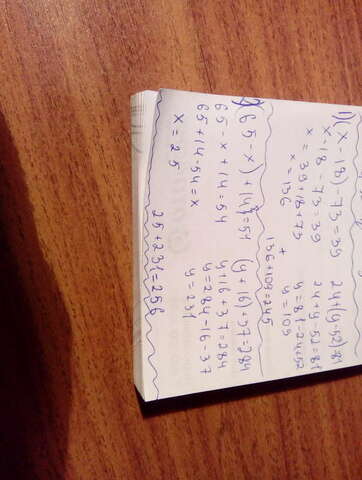 1) (x-18)-73=39 24+(y-52)=81
x-18-73=39 24+y-52=81
x=39+18+73 y=81-24+52
x=136 + y=109
136+109=245
2) (65-x)+14=54 (y+16)+37=284
65-x+14=54 y+16+37=284
65+14-54=x y=284-16-37
x=25 y=231
25+231=256